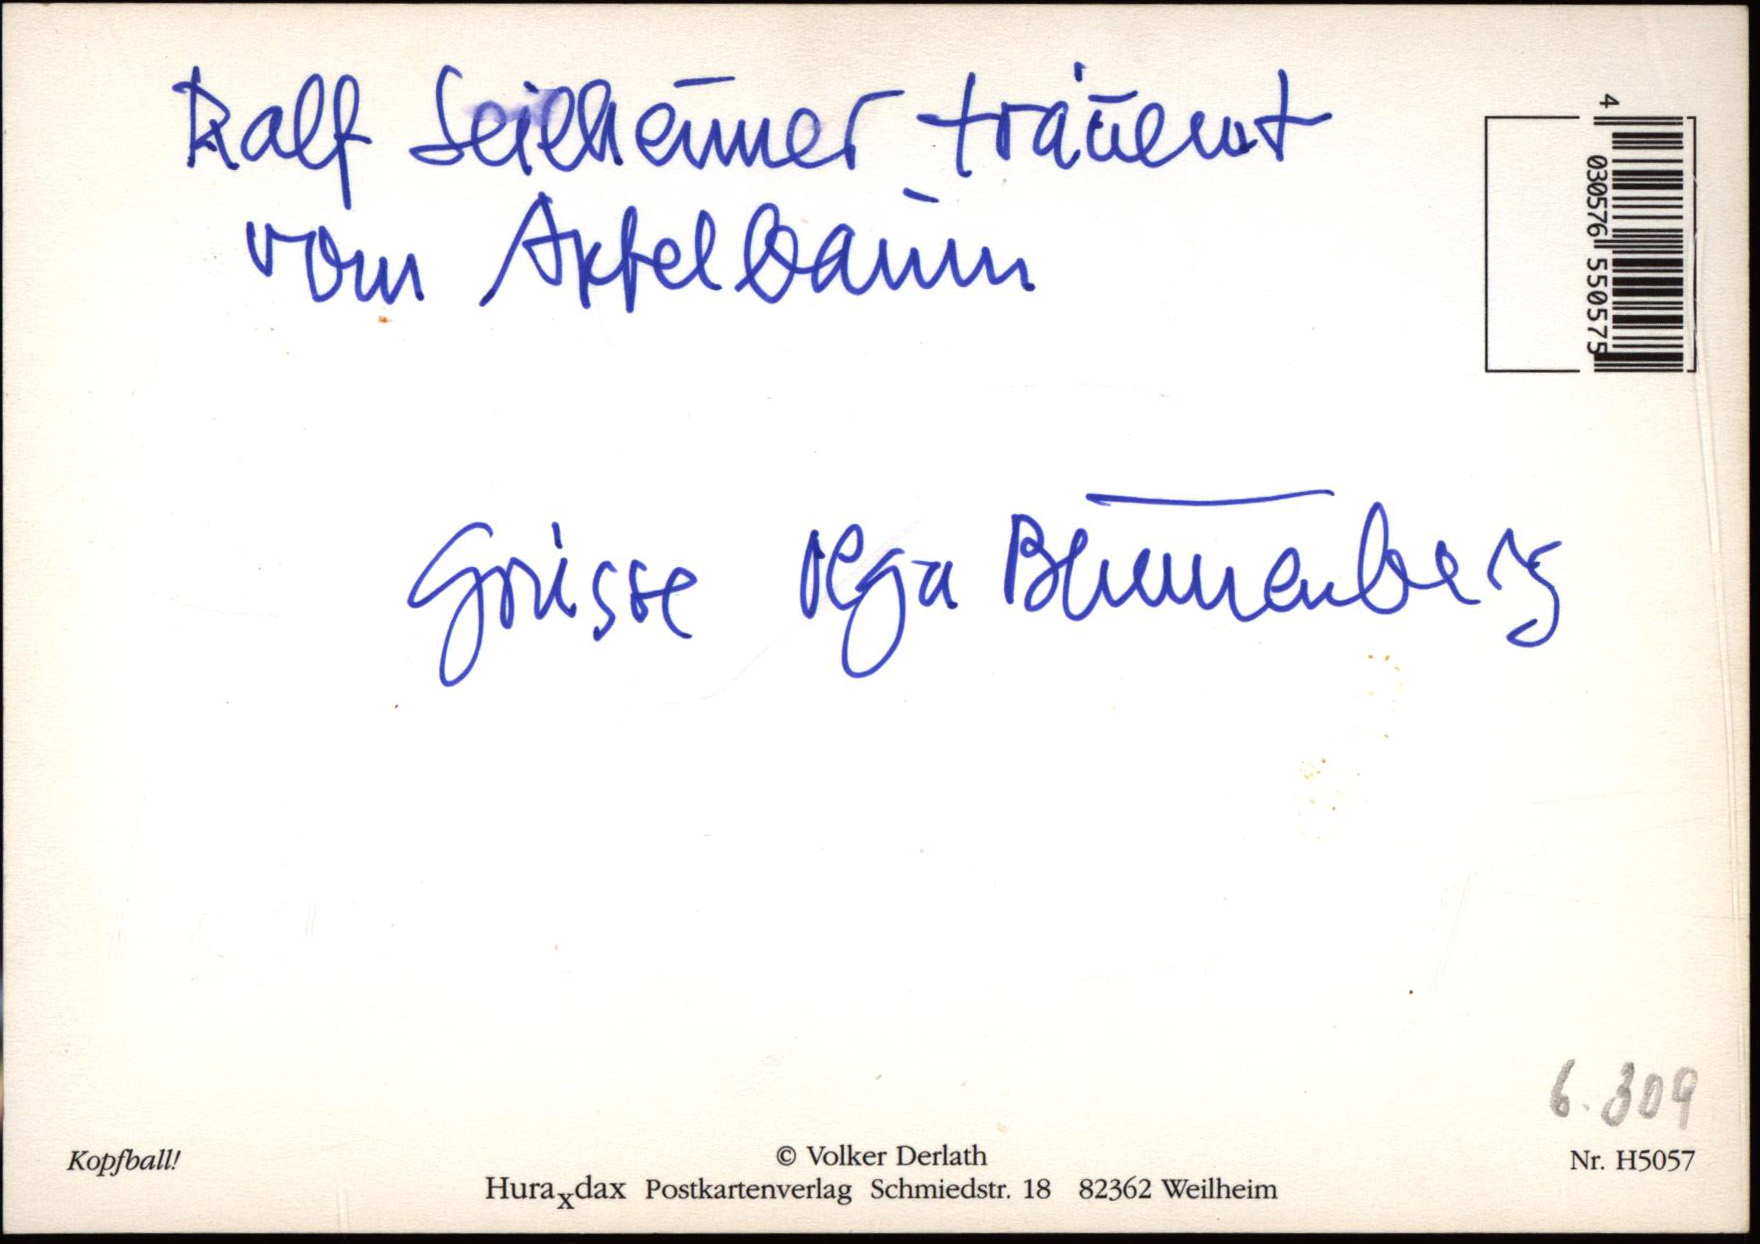 Ralf Seilheimer träumt
vom Apfelbaum
Grüsse Olga Blumenberg
4 030576 550575
6.309
Kopfball!
© Volker Derlath
Nr. H5057
Huraxdax Postkartenverlag Schmiedstr. 18 82362 Weilheim